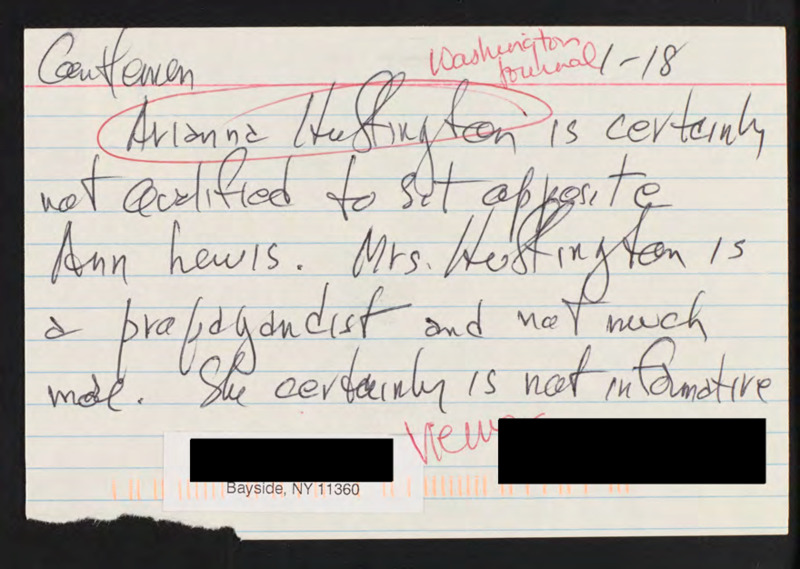 Gentlemen
Washington
Journal 1-18
Arianna Huffington is certainly
not qualified to sit opposite
Ann Lewis. Mrs. Huffington is
a propagandist and not much
more. She certainly is not informative
Bayside, NY 11360